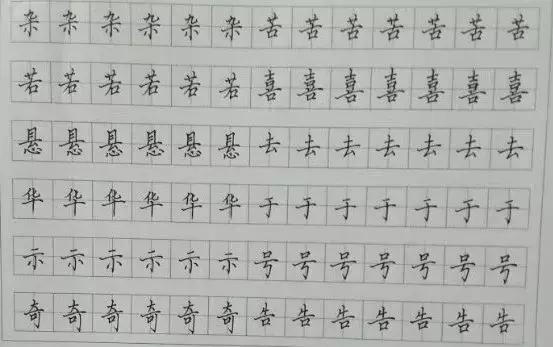 杂杂杂杂杂杂苦苦苦苦苦苦苦
若若若若若若喜喜喜喜喜喜喜
悬悬悬悬悬悬去去去去去去去
华华华华华华于于于于于于于
示示示示示示号号号号号号号
奇奇奇奇奇奇告告告告告告告